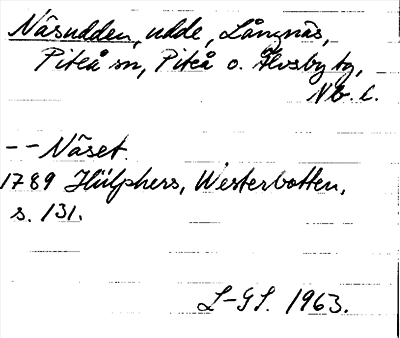 Näsudden, udde, Långnäs,
Piteå sn, Piteå o. Älvsby tg,
Nb. l.
-- Näset.
1789 Hülphers, Westerbotten,
s. 131.
L-GS. 1963.